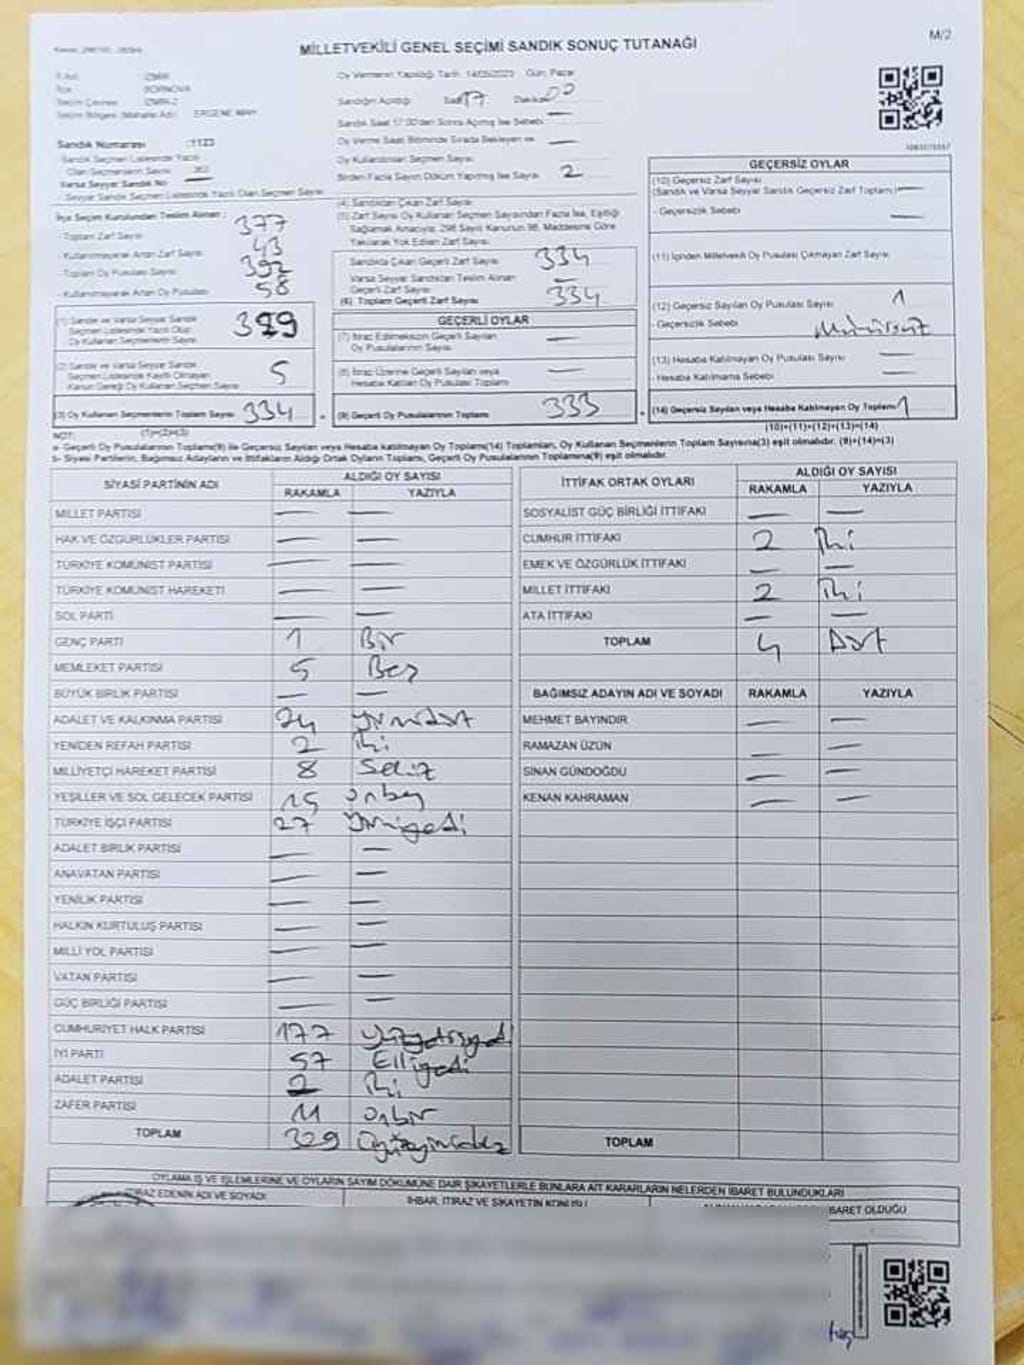 MİLLETVEKİLİ GENEL SEÇİMİ SANDIK SONUÇ TUTANAĞI
M/2
İlçe BORNOVA
Seçim Çevresi İZMİR-2
Oy Vermenin Yapıldığı Tarih: 14/05/2023 Gün: Pazar
Sandığın Açıldığı Saat 17 Dakika 00
Sandık Saat 17:00'den Sonra Açılmış İse Sebebi —
Oy Verme Saati Bitiminde Sırada Bekleyen ve —
Oy Kullandırılan Seçmen Sayısı
Birden Fazla Sayım Döküm Yapılmış İse Sayısı 2
Sandık Numarası :1123
Sandık Seçmen Listesinde Yazılı
Olan Seçmenlerin Sayısı
Varsa Seyyar Sandık No —
Seyyar Sandık Seçmen Listesinde Yazılı Olan Seçmen Sayısı
İlçe Seçim Kurulundan Teslim Alınan:
- Toplam Zarf Sayısı 377
- Kullanılmayarak Artan Zarf Sayısı 43
- Toplam Oy Pusulası Sayısı 392
- Kullanılmayarak Artan Oy Pusulası 58
(1) Sandık ve Varsa Seyyar Sandık
Seçmen Listesinde Yazılı Olup
Oy Kullanan Seçmenlerin Sayısı 329
(2) Sandık ve Varsa Seyyar Sandık
Seçmen Listesinde Kayıtlı Olmayan,
Kanun Gereği Oy Kullanan Seçmen Sayısı 5
(3) Oy Kullanan Seçmenlerin Toplam Sayısı 334
(1)+(2)=(3)
(4) Sandıktan Çıkan Zarf Sayısı
(5) Zarf Sayısı Oy Kullanan Seçmen Sayısından Fazla İse, Eşitliği
Sağlamak Amacıyla; 298 Sayılı Kanunun 98. Maddesine Göre
Yakılarak Yok Edilen Zarf Sayısı
Sandıkta Çıkan Geçerli Zarf Sayısı 334
Varsa Seyyar Sandıktan Teslim Alınan
Geçerli Zarf Sayısı —
(6) Toplam Geçerli Zarf Sayısı 334
GEÇERLİ OYLAR
(7) İtiraz Edilmeksizin Geçerli Sayılan
Oy Pusulalarının Sayısı —
(8) İtiraz Üzerine Geçerli Sayılan veya
Hesaba Katılan Oy Pusulaları Toplamı —
(9) Geçerli Oy Pusulalarının Toplamı 333
GEÇERSİZ OYLAR
(10) Geçersiz Zarf Sayısı
(Sandık ve Varsa Seyyar Sandık Geçersiz Zarf Toplamı) —
- Geçersizlik Sebebi —
(11) İçinden Milletvekili Oy Pusulası Çıkmayan Zarf Sayısı
(12) Geçersiz Sayılan Oy Pusulası Sayısı 1
- Geçersizlik Sebebi Mühürsüz
(13) Hesaba Katılmayan Oy Pusulası Sayısı —
- Hesaba Katılmama Sebebi —
(14) Geçersiz Sayılan veya Hesaba Katılmayan Oy Toplamı 1
(10)+(11)+(12)+(13)=(14)
NOT:
a- Geçerli Oy Pusulalarının Toplamı(9) ile Geçersiz Sayılan veya Hesaba katılmayan Oy Toplamı(14) Toplamları, Oy Kullanan Seçmenlerin Toplam Sayısına(3) eşit olmalıdır. (9)+(14)=(3)
b- Siyasi Partilerin, Bağımsız Adayların ve İttifakların Aldığı Ortak Oyların Toplamı, Geçerli Oy Pusulalarının Toplamına(9) eşit olmalıdır.
SİYASİ PARTİNİN ADI ALDIĞI OY SAYISI
RAKAMLA YAZIYLA
MİLLET PARTİSİ — —
HAK VE ÖZGÜRLÜKLER PARTİSİ — —
TÜRKİYE KOMÜNİST PARTİSİ — —
TÜRKİYE KOMÜNİST HAREKETİ — —
SOL PARTİ — —
GENÇ PARTİ 1 Bir
MEMLEKET PARTİSİ 5 Beş
BÜYÜK BİRLİK PARTİSİ — —
ADALET VE KALKINMA PARTİSİ 24 yirmidört
YENİDEN REFAH PARTİSİ 2 iki
MİLLİYETÇİ HAREKET PARTİSİ 8 Sekiz
YEŞİLLER VE SOL GELECEK PARTİSİ 15 onbeş
TÜRKİYE İŞÇİ PARTİSİ 27 Yirmiyedi
ADALET BİRLİK PARTİSİ — —
ANAVATAN PARTİSİ — —
YENİLİK PARTİSİ — —
HALKIN KURTULUŞ PARTİSİ — —
MİLLİ YOL PARTİSİ — —
VATAN PARTİSİ — —
GÜÇ BİRLİĞİ PARTİSİ — —
CUMHURİYET HALK PARTİSİ 177
İYİ PARTİ 57 Elliyedi
ADALET PARTİSİ 2 iki
ZAFER PARTİSİ 11 onbir
TOPLAM 329
İTTİFAK ORTAK OYLARI ALDIĞI OY SAYISI
RAKAMLA YAZIYLA
SOSYALİST GÜÇ BİRLİĞİ İTTİFAKI — —
CUMHUR İTTİFAKI 2 iki
EMEK VE ÖZGÜRLÜK İTTİFAKI — —
MİLLET İTTİFAKI 2 iki
ATA İTTİFAKI — —
TOPLAM 4 Dört
BAĞIMSIZ ADAYIN ADI VE SOYADI RAKAMLA YAZIYLA
MEHMET BAYINDIR — —
RAMAZAN ÜZÜN — —
SİNAN GÜNDOĞDU — —
KENAN KAHRAMAN — —
TOPLAM
OYLAMA İŞ VE İŞLEMLERİNE VE OYLARIN SAYIM DÖKÜMÜNE DAİR ŞİKAYETLERLE BUNLARA AİT KARARLARIN NELERDEN İBARET BULUNDUKLARI
İTİRAZ EDENİN ADI VE SOYADI
İHBAR, İTİRAZ VE ŞİKAYETİN KONUSU
İBARET OLDUĞU